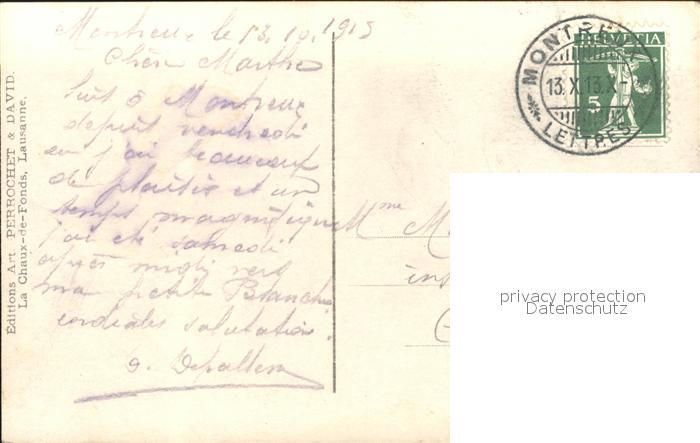 Montreux le 13.10.1913
Chère Marthe
Suis à Montreux
depuis vendredi
ou j'ai beaucoup
de plaisir et un
temps magnifique
j'ai été samedi
après midi vers
ma petite Blanche
cordiales salutation.
Mme M
Editions Art. PERROCHET & DAVID.
La Chaux-de-Fonds, Lausanne.
MONTREUX
13.X.13.X-
LETTRES
HELVETIA
5
privacy protection
Datenschutz